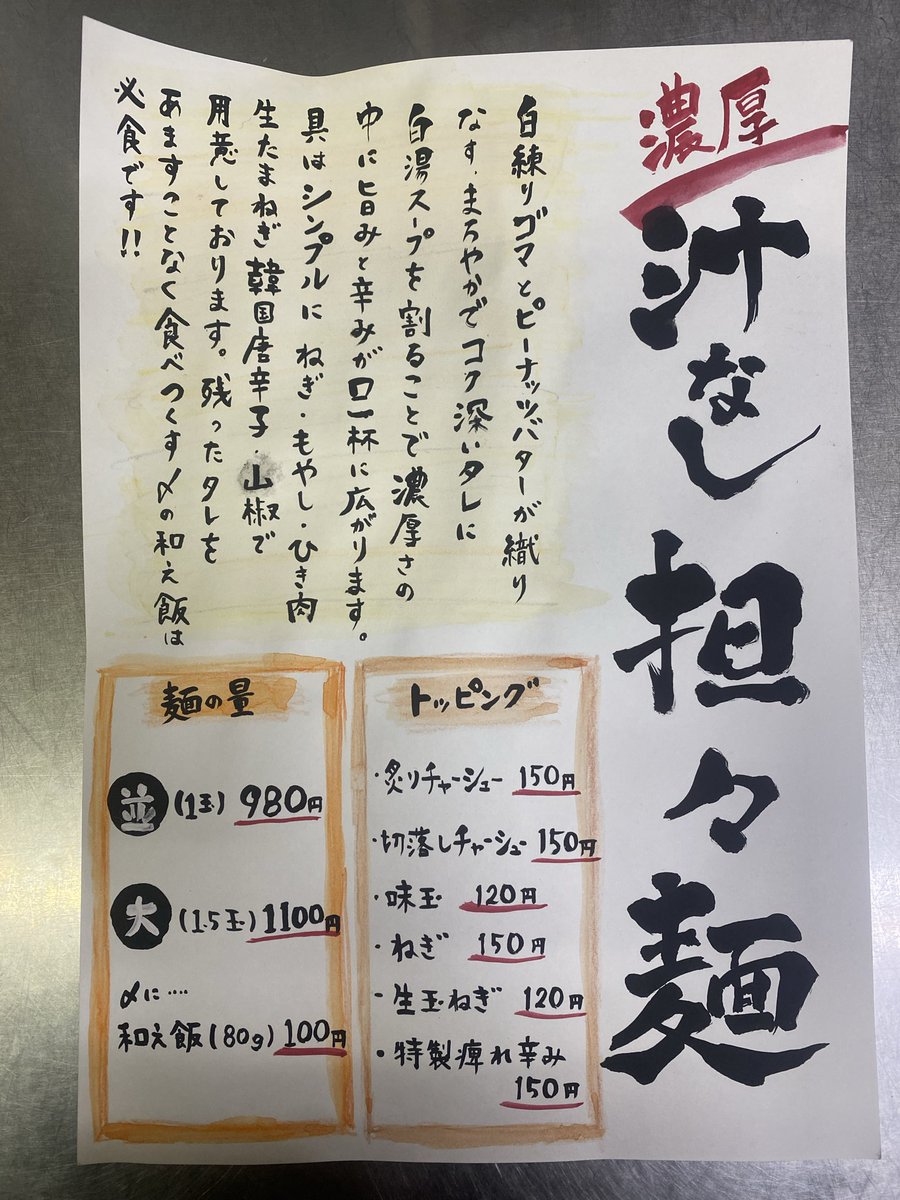 濃厚
汁なし担々麺
白練りゴマとピーナッツバターが織り
なす、まろやかでコク深いタレに
白湯スープを割ることで濃厚さの
中に旨みと辛みが口一杯に広がります。
具はシンプルにねぎ・もやし・ひき肉
生たまねぎ韓国唐辛子・山椒で
用意しております。残ったタレを
あますことなく食べつくす〆の和え飯は
必食です!!
トッピング
・炙りチャーシュー 150円
・切落しチャーシュー 150円
・味玉 120円
・ねぎ 150円
・生玉ねぎ 120円
・特製痺れ辛み
150円
麺の量
並 (1玉) 980円
大 (1.5玉) 1100円
〆に‥‥
和え飯(80g) 100円